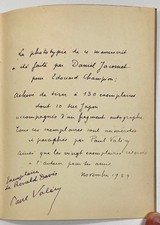 La phototypie de ce manuscrit
a été faite par Daniel Jacomet
pour Edouard Champion;
de tirée à 130 exemplaires
dont 10 sur Japon
accompagnés d'un fragment autographe.
Tous ces exemplaires sont numérotés
et paraphés par Paul Valéry
Ainsi que les vingt exemplaires
à l'auteur pour ses amis
Novembre 1929
Exemplaire
de Ronald Davis
Paul Valéry